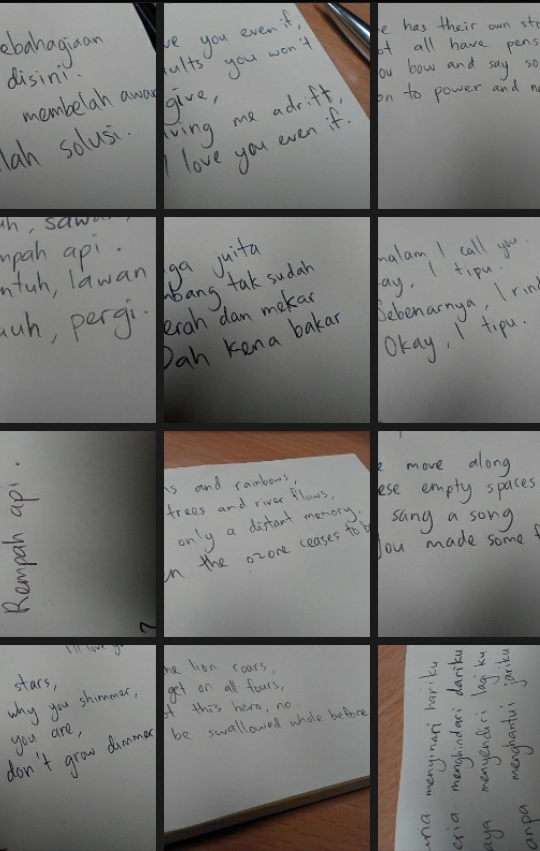 ebahagiaan
disini.
membelah awan
lah solusi.
ve you even if,
ults you won't
give,
iving me adrift,
I love you even if.
e has their own sto
ot all have pens
ou bow and say so
on to power and n
uh, sawan,
mpah api.
ntuh, lawan
auh, pergi.
ga juita
mbang tak sudah
erah dan mekar
Dah kena bakar
malam I call you.
ay, I tipu.
Sebenarnya, I rind
Okay, I tipu.
Rempah api.
ns and rainbows,
trees and river flows,
only a distant memory,
en the ozone ceases to b
e move along
ese empty spaces
sang a song
You made some f
I'll love yo
stars,
why you shimmer,
you are,
don't grow dimmer
he lion roars,
get on all fours,
of this hero, no.
be swallowed whole before
uria menyinari hariku
eria menghindari dariku
aya menyendiri lagi ku
anpa menghantui jariku